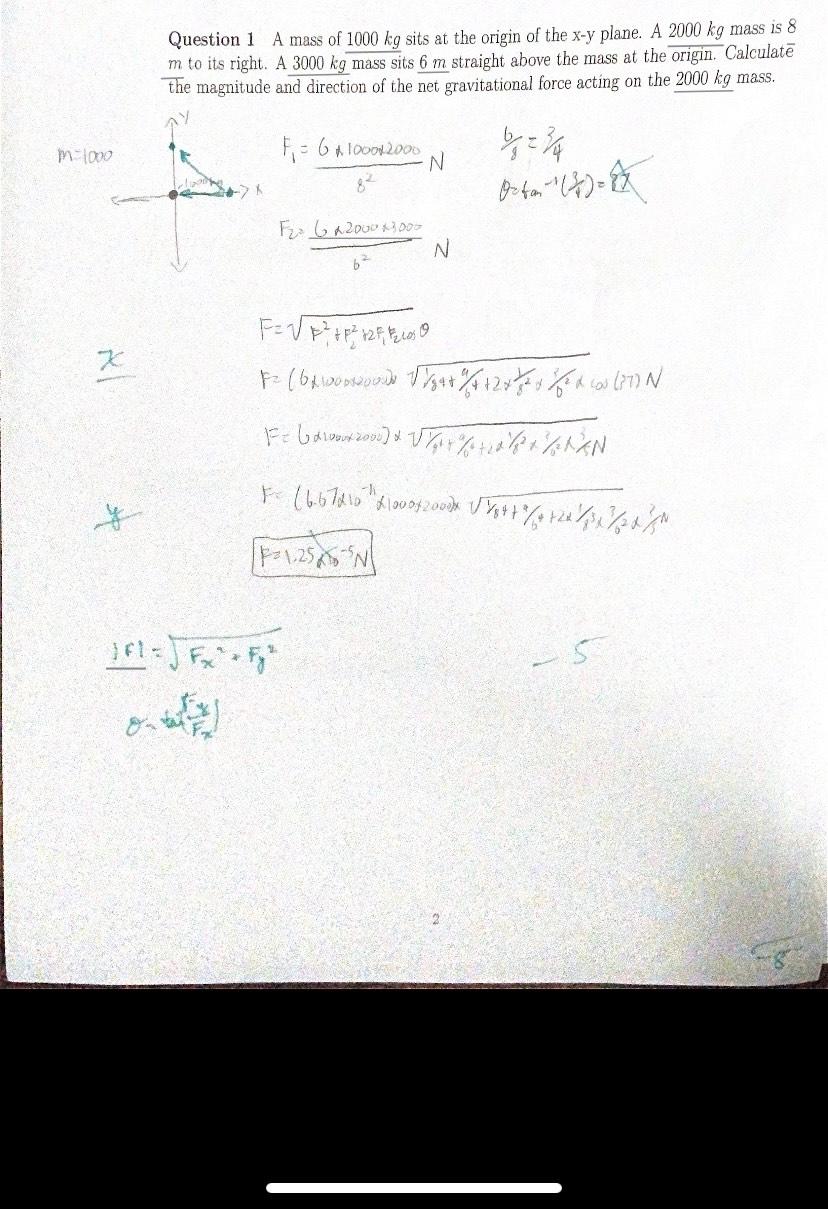 Question 1 A mass of 1000 kg sits at the origin of the x-y plane. A 2000 kg mass is 8
m to its right. A 3000 kg mass sits 6 m straight above the mass at the origin. Calculate
the magnitude and direction of the net gravitational force acting on the 2000 kg mass.
y
m=1000
x
F₁ = G×1000×2000 / 8² N
6/8 = 3/4
θ=tan⁻¹(3/4)=37
F₂= G×2000×3000 / 6² N
F=√F₁²+F₂²+2F₁F₂cosθ
x
F=(G×1000×2000)× √1/8⁴+9/6⁴+2×1/8²×3/6²×cos(37) N
y
F=1.25×10⁻⁵N
|F| = √Fx² + Fy²
-5
2
-8